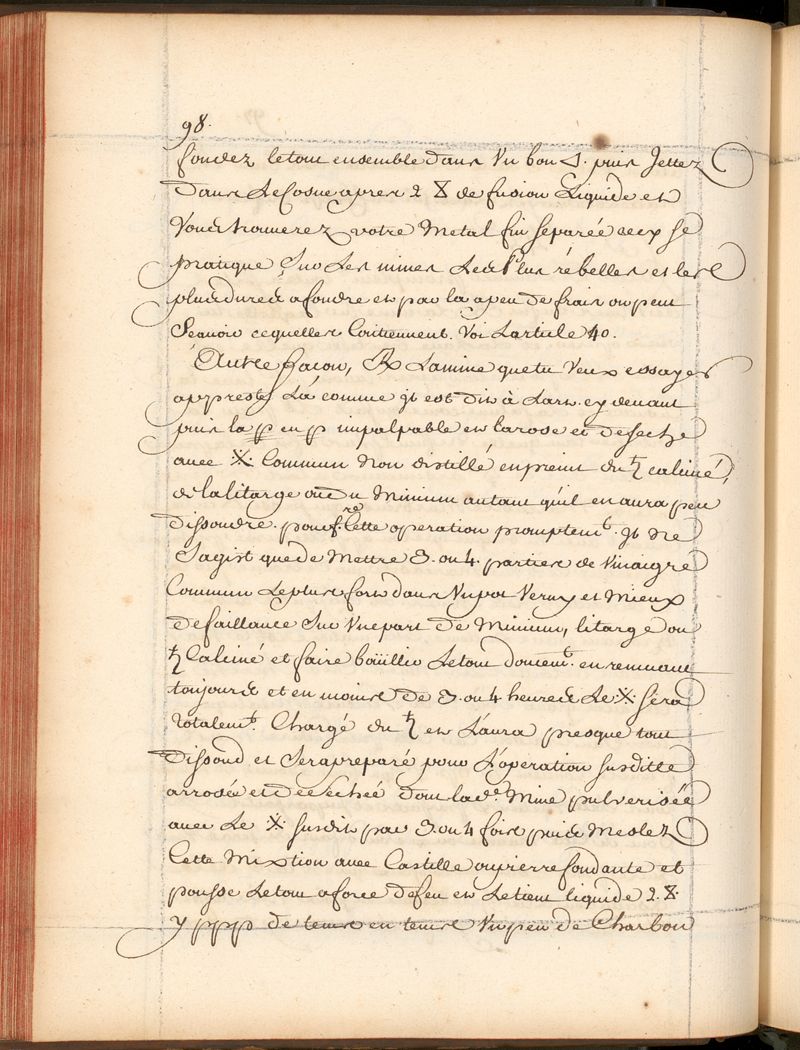 98.
fondez letout ensemble dans Vn bon puis Jettez
dans Le Cosne apres 2 de fusion Liquide et
Vous trouverez votre Metal fin separée cecy se
pratique Sur Les mines Les plus rébelles et les
plus dures a fondre et par la a peu de frais on peut
Scavoir cequelles Contiennent. Voi Larticle 40.
Autre facon, ℞ Lamine quetu Veux essayer
apprestez La comme jl est dit à Lart. cy devant
puis la en impalpable et larose et deseche
avec ⁜ Commun Non distillé empreint du ♄ calciné,
de lalitarge ou du Minium autant qu'il en aura peu
dissoudre. pour f.re Cette operation promptem.t jl ne
Sagist que de Mettre 3. ou 4. parties de Vinaigre
Commun Leplus fort dans Vn pot Verny et Mieux
defaillance Sur Vne part de Minium, litarge ou
♄ Calciné et faire boüillir Letout doucem.t en remuant
toujours et en moins de 3. ou 4 heures Le ⁜ sera
totalem.t Chargé du ♄ et L'aura presque tout
dissoud et Sera preparé pour L'operation susditte
arrosée et desechée dont lad.e Mine pulverisée
avec Le ⁜ susdit par 3. ou 4 fois puis Meslez
Cette Mixtion avec Castille ou pierre fondante et
pousse Letout a force defeu et Letient liquide 2.
y ppp de tems en tems Vn peu de Charbon